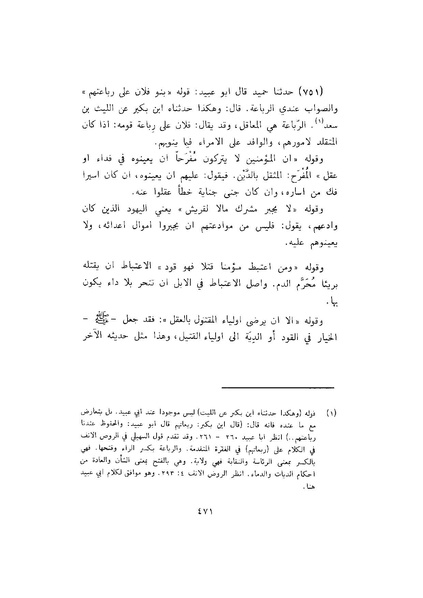 (٧٥١) حدثنا حميد قال ابو عبيد: قوله «بنو فلان على رباعتهم»
والصواب عندي الرباعة. قال: وهكذا حدثناه ابن بكير عن الليث بن
سعد(١). الرّباعة هي المعاقل، وقد يقال: فلان على رباعة قومه: اذا كان
المتقلد لامورهم، والوافد على الامراء فيما ينوبهم.
وقوله «ان المؤمنين لا يتركون مُفْرَحاً ان يعينوه في فداء او
عقل» المُفْرَح: المثقل بالدَّيْن. فيقول: عليهم ان يعينوه، ان كان اسيرا
فك من اساره، وان كان جنى جناية خطأ عقلوا عنه.
وقوله «لا يجير مشرك مالا لقريش» يعني اليهود الذين كان
وادعهم، يقول: فليس من موادعتهم ان يجيروا اموال أعدائه، ولا
يعينوهم عليه.
وقوله «ومن اعتبط مؤمنا قتلا فهو قود» الاعتباط ان يقتله
بريئا مُحَرَّم الدم. واصل الاعتباط في الابل ان تنحر بلا داء يكون
بها.
وقوله «الا ان يرضى اولياء المقتول بالعقل»: فقد جعل - ﷺ -
الخيار في القود أو الدِيَة الى اولياء القتيل، وهذا مثل حديثه الآخر
(١) قوله (وهكذا حدثناه ابن بكير عن الليث) ليس موجودا عند أبي عبيد. بل يتعارض
مع ما عنده فانه قال: (قال ابن بكير: ربعاتهم قال ابو عبيد: والمحفوظ عندنا
رباعتهم..) انظر ابا عبيد ٢٦٠ - ٢٦١. وقد تقدم قول السهيلي في الروض الانف
في الكلام على (ربعاتهم) في الفقرة المتقدمة. والرباعة بكسر الراء وفتحها. فهي
بالكسر بمعنى الرئاسة والنقابة فهي ولاية. وهي بالفتح بمعنى الشأن والعادة من
احكام الديات والدماء. انظر الروض الانف ٤: ٢٩٣. وهو موافق لكلام ابي عبيد
هنا.
٤٧١